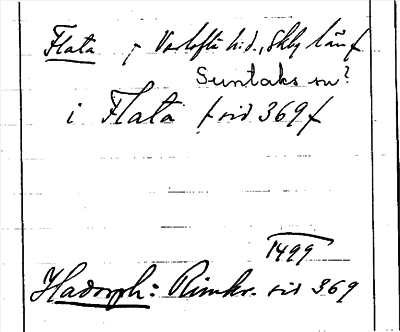 Flata, Vartofta hd., Skbg län
Suntaks sn?
i Flata (sid 369)
1499
Hadorph: Rimkr. sid 369